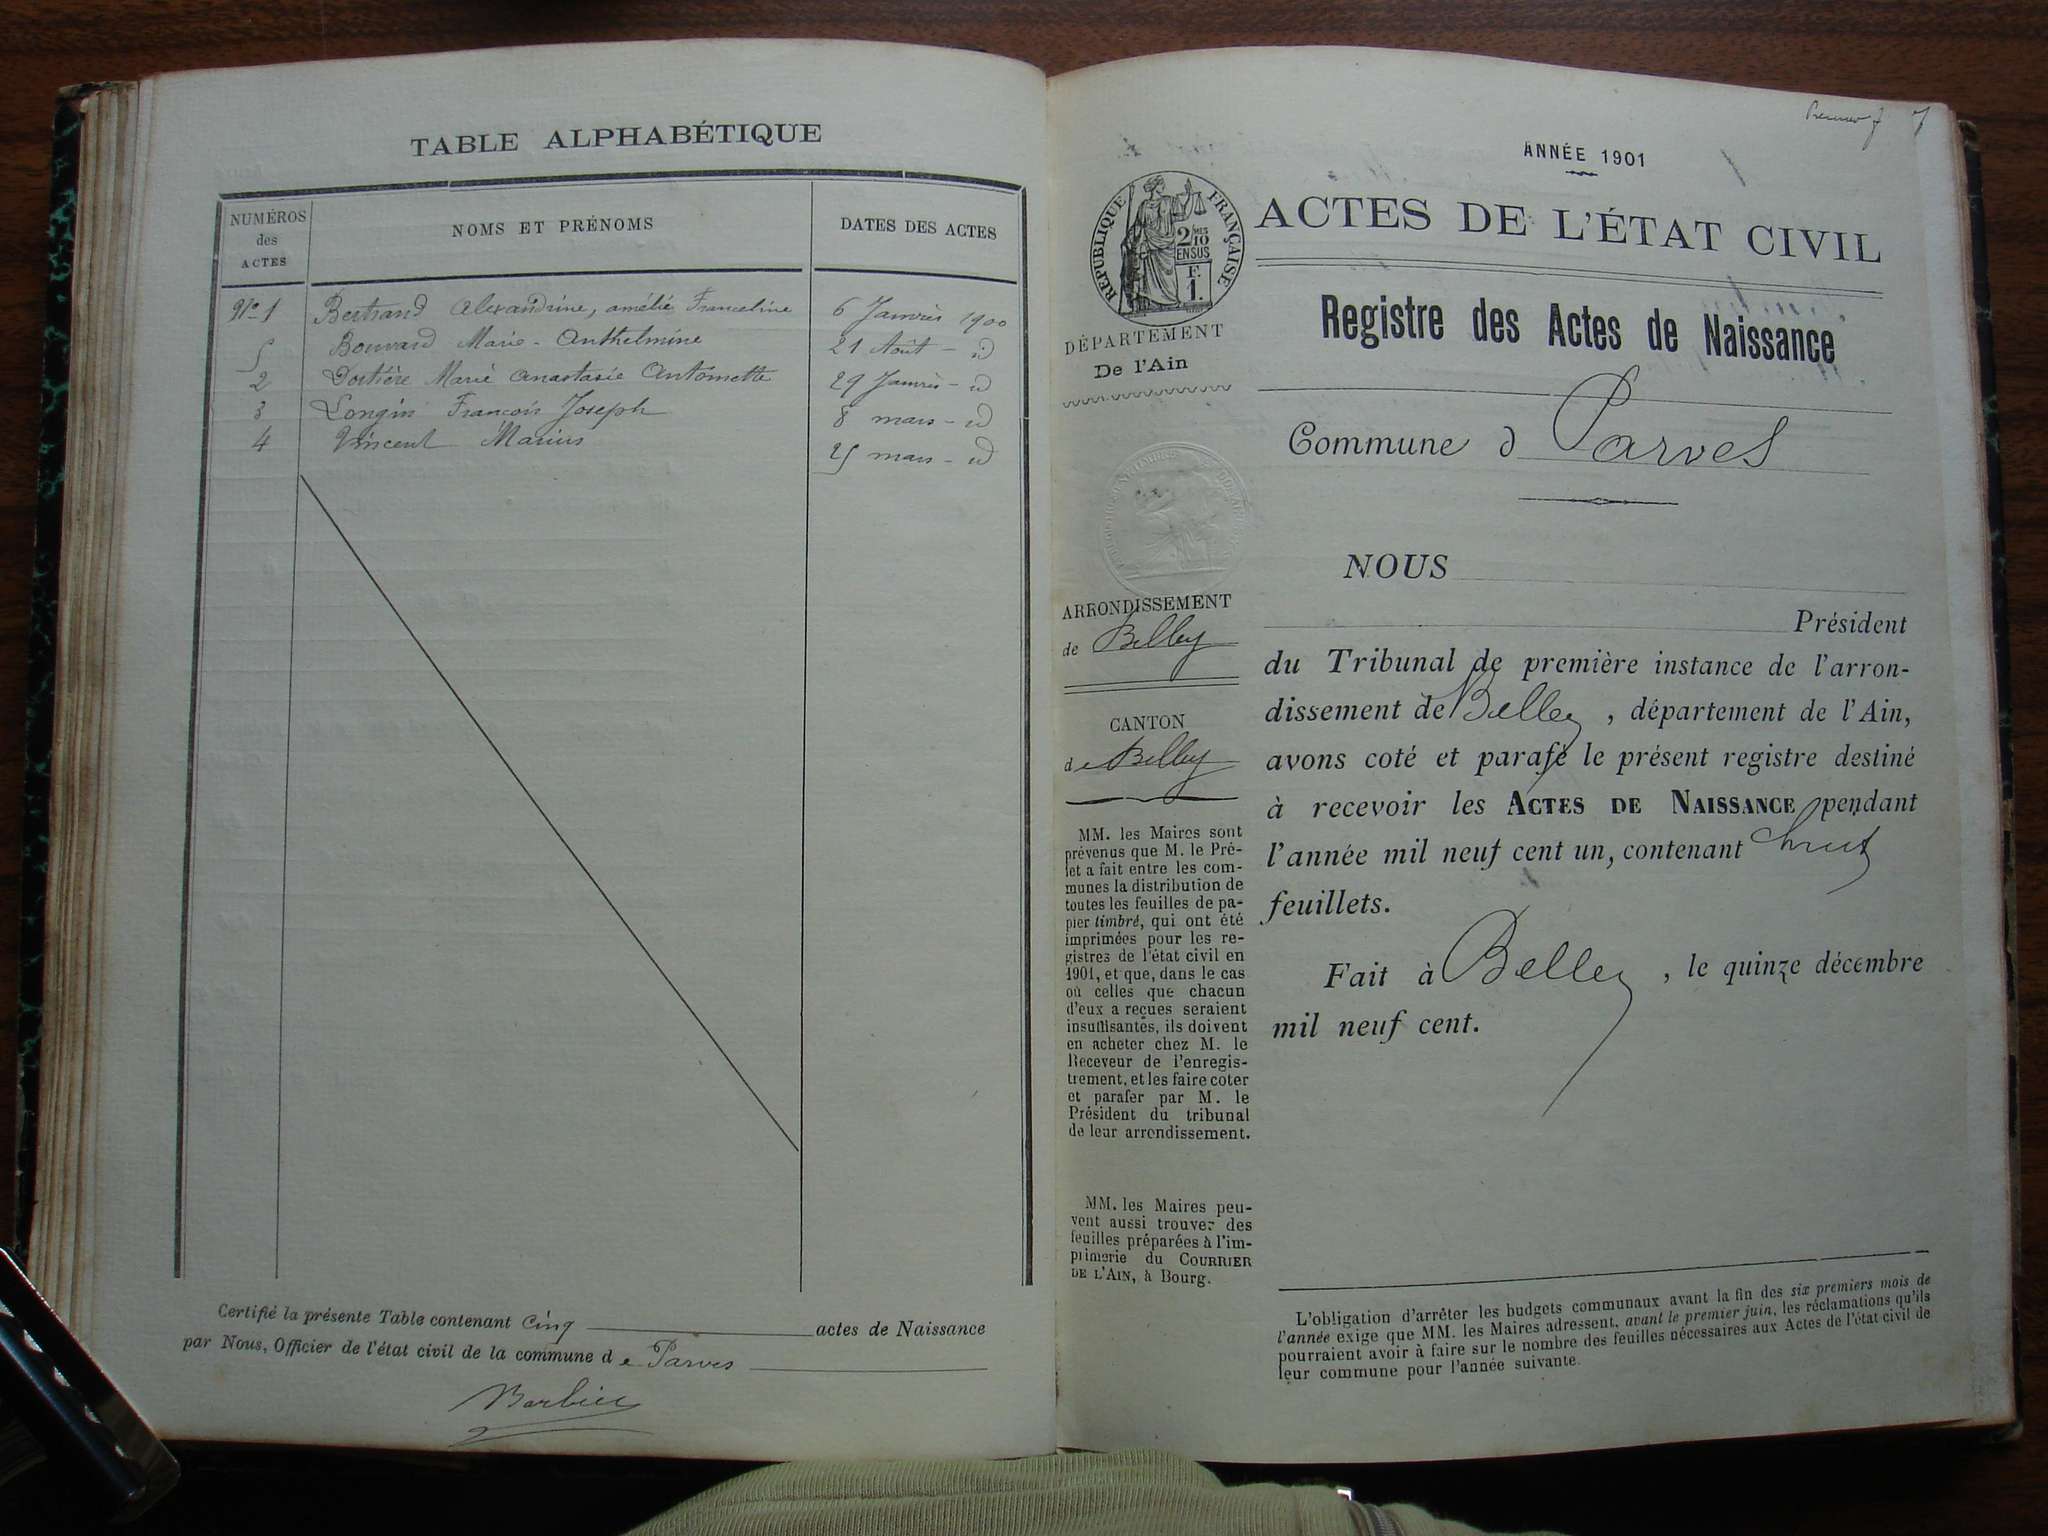 TABLE ALPHABÉTIQUE
NUMÉROS des ACTES NOMS ET PRÉNOMS DATES DES ACTES
Nº 1 Bertrand Alexandrine, amélie Franceline 6 Janvier 1900
5 Bouvard Marie-Anthelmine 21 Août - id
2 Dortière Marie anastasie Antoinette 29 Janvier - id
3 Longin François Joseph 8 mars - id
4 Vincent Marius 25 mars - id
Certifié la présente Table contenant cinq actes de Naissance
par Nous, Officier de l'état civil de la commune de Parves
Barbier
Premier f
ANNÉE 1901
ACTES DE L'ÉTAT CIVIL
RÉPUBLIQUE FRANÇAISE
2/10 MES
EN SUS
F.
1.
DÉPARTEMENT
De l'Ain
Registre des Actes de Naissance
Commune d Parves
ARRONDISSEMENT
de Belley
CANTON
de Belley
MM. les Maires sont
prévenus que M. le Pré-
fet a fait entre les com-
munes la distribution de
toutes les feuilles de pa-
pier timbré, qui ont été
imprimées pour les re-
gistres de l'état civil en
1901, et que, dans le cas
où celles que chacun
d'eux a reçues seraient
insuffisantes, ils doivent
en acheter chez M. le
Receveur de l'enregis-
trement, et les faire coter
et parafer par M. le
Président du tribunal
de leur arrondissement.
MM. les Maires peu-
vent aussi trouver des
feuilles préparées à l'im-
primerie du COURRIER
DE L'AIN, à Bourg.
NOUS
Président
du Tribunal de première instance de l'arron-
dissement de Belley, département de l'Ain,
avons coté et parafé le présent registre destiné
à recevoir les ACTES DE NAISSANCE pendant
l'année mil neuf cent un, contenant huit
feuillets.
Fait à Belley, le quinze décembre
mil neuf cent.
L'obligation d'arrêter les budgets communaux avant la fin des six premiers mois de
l'année exige que MM. les Maires adressent, avant le premier juin, les réclamations qu'ils
pourraient avoir à faire sur le nombre des feuilles nécessaires aux Actes de l'état civil de
leur commune pour l'année suivante.